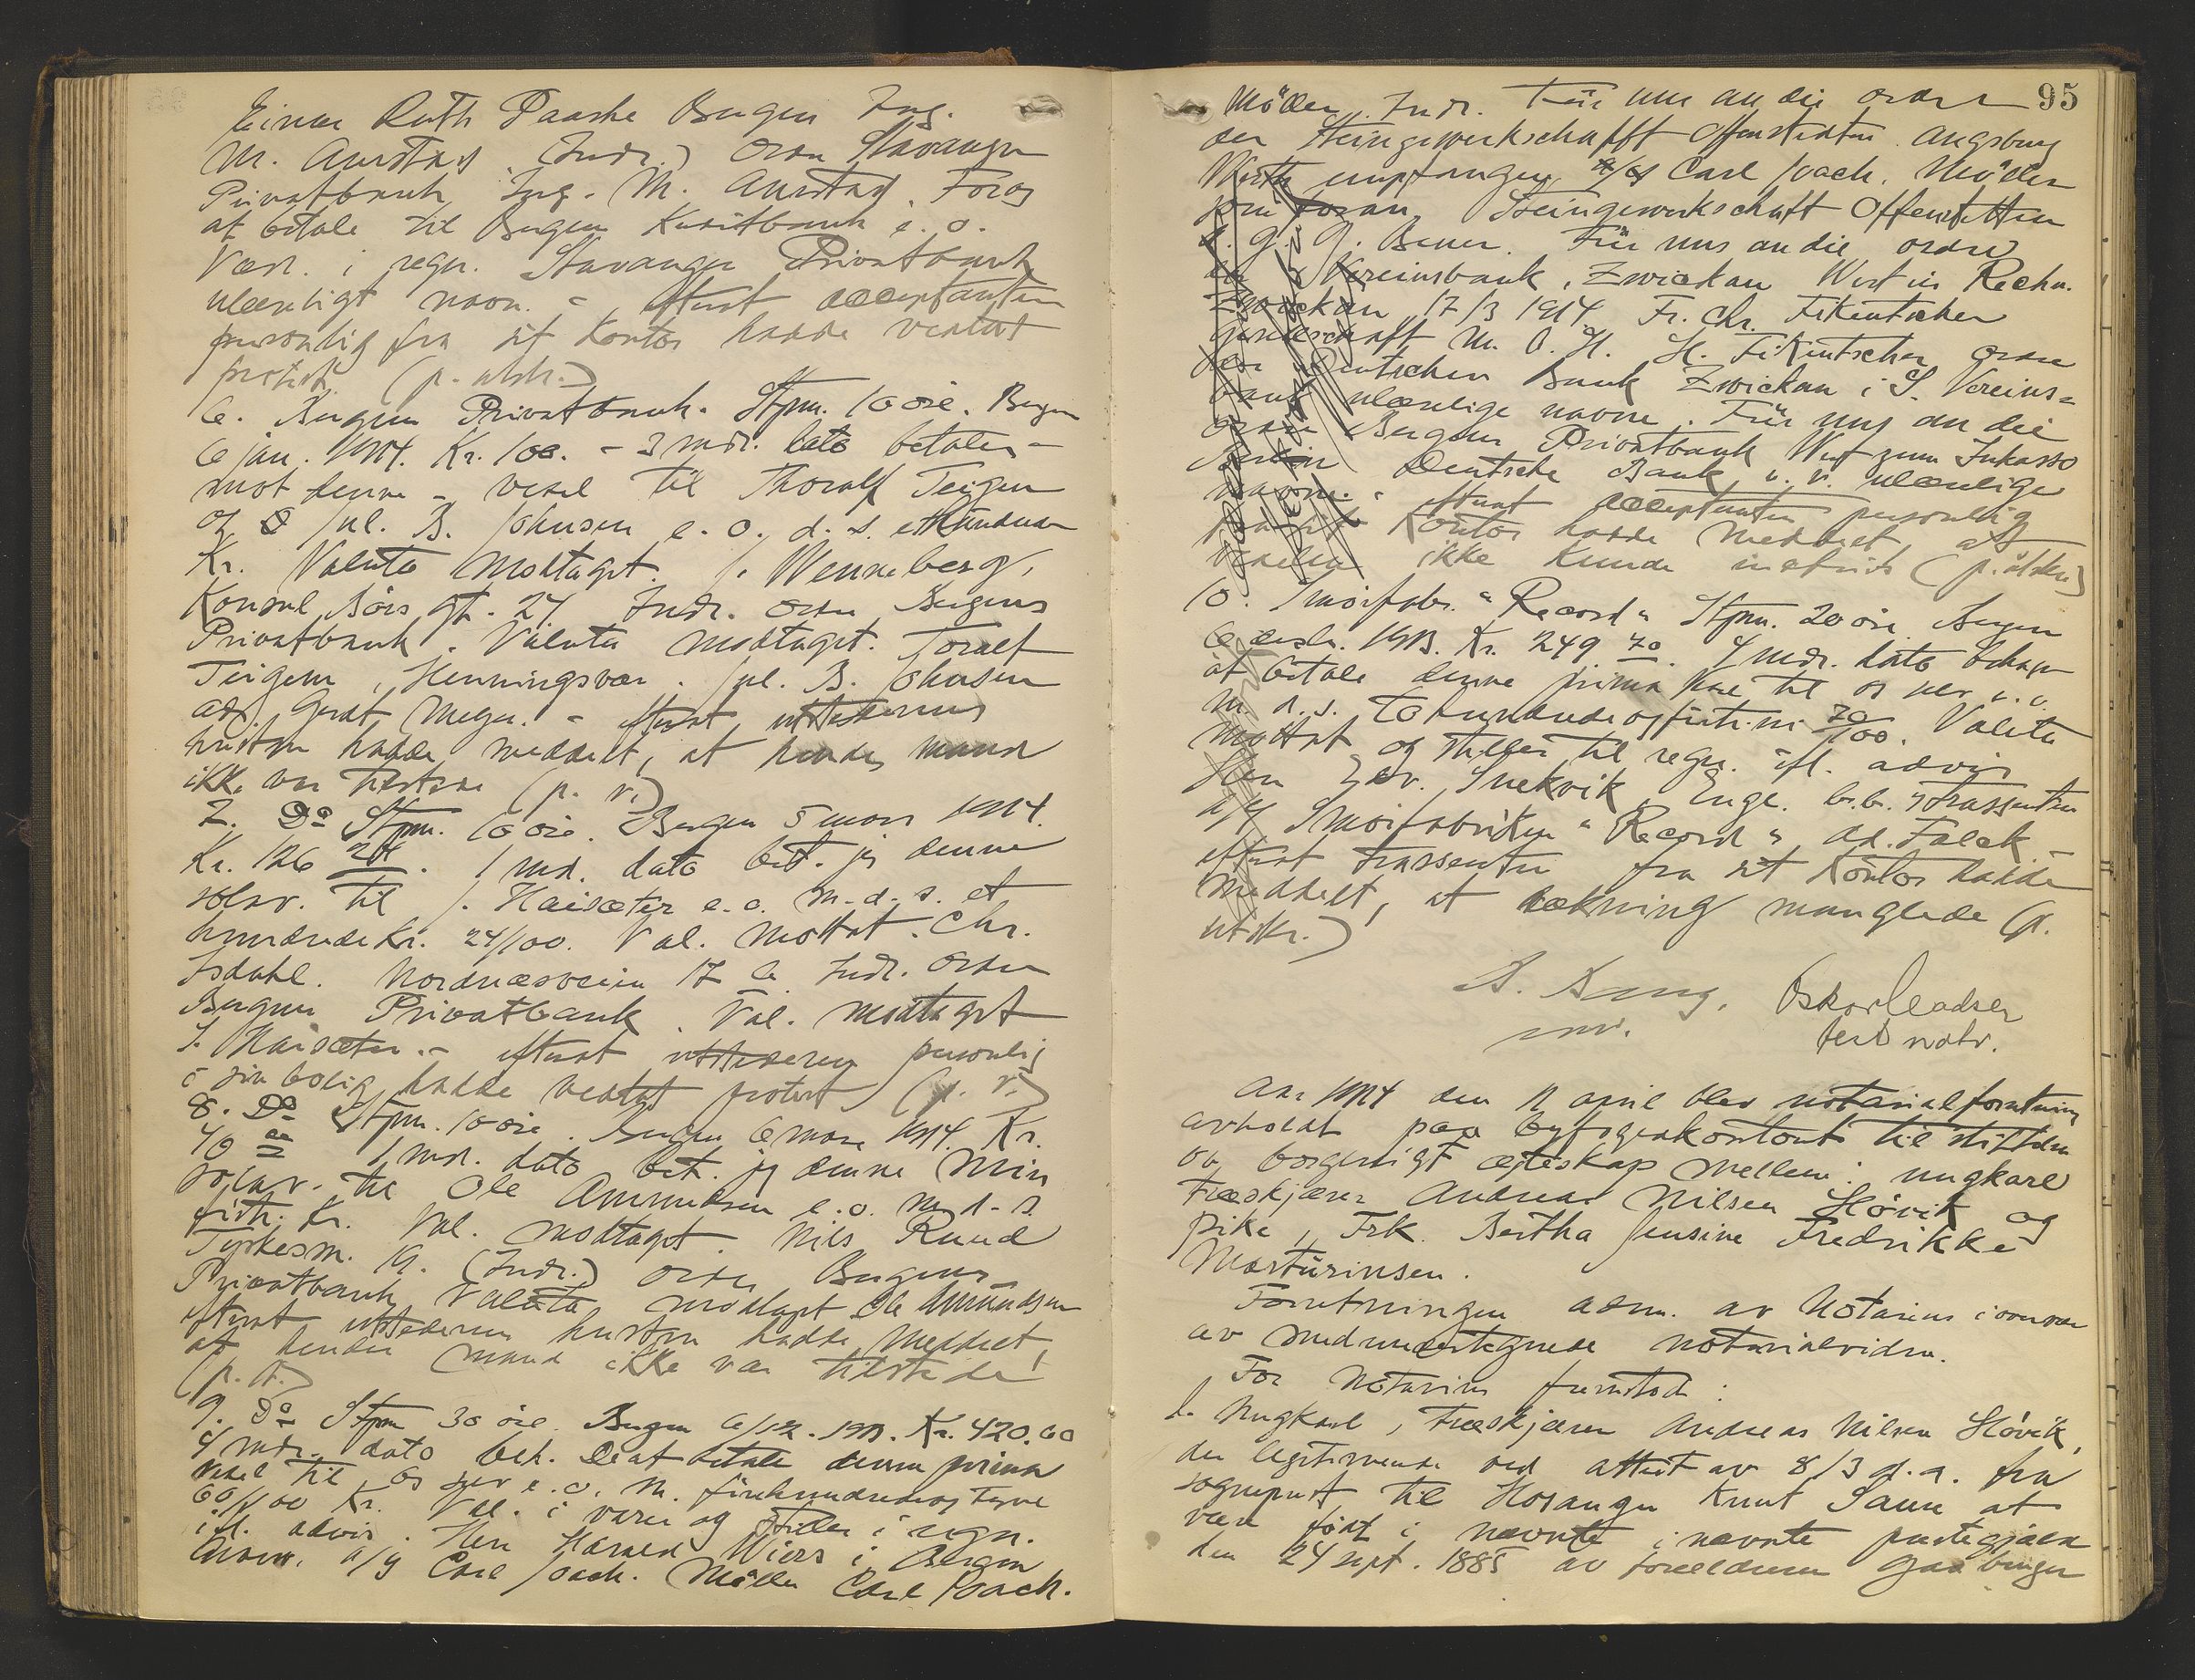 Einar Ruth Paaske Bergen Ing.
M. Aurstad (Indr.) Ordre Stavanger
Privatbank Ing. M. Aurstad Foros
at betale til Bergen Kreditbank e. o.
Værd. i regn. Stavanger Privatbank
ulæseligt navn. - efterat acceptanten
personlig fra sit kontor hadde vedtat
protest (p. utskr.)
6. Bergens Privatbank. Stpm. 10 øre. Bergen
6 jan. 1914. Kr. 100. - 3 mdr. dato betales
mot denne - veksel til Thoralf Teigen
og Jul. B. Johnsen e. o. d. s. ethundrede
Kr. Valuta modtaget. J. Wenneberg,
Konsul Børs gt. 24. Indr. ordre Bergens
Privatbank. Valuta modtaget. Toralf
Teigen, Henningsvær. Jul. B. Johnsen
adr. Gerdt Meyer. - efterat utstederens
hustru hadde meddelt, at hendes mand
ikke var tilstede (p. r.)
7. Do Stpm. 10 øre. Bergen 5 mars 1914.
Kr. 126 24. 1 md. dato bet. jeg denne
solav. til J. Haisæter e. o. m. d. s. et
hundrede Kr. 24/100. Val. mottat. Chr.
Isdahl. Nordnæsveien 17 b. Indr. Ordre
Bergens Privatbank. Val. modtaget
J. Haisæter. - efterat utstederen personlig
i sin bolig hadde vedtat protest (p. r.)
8. Do Stpm. 10 øre. Bergen 6 mars 1914. Kr.
40 00 1 md. dato bet. jeg denne min
solav. til Ole Amundsen e. o. m. d. s.
firti Kr. Val. modtaget. Nils Ruud
(Indr.) ordre Bergens
Privatbank Valuta modtaget Ole Amundsen
efterat utstederens hustru hadde meddelt,
at hendes mand ikke var tilstede
(p. r.)
9. Do Stpm 30 øre. Bergen 6/12. 1913. Kr. 420.60
4 mdr. dato beh. De at betale denne prima
veksel til os selv e. o. m. firehundredeogtyve
60/100 Kr. Val. i varer og stilles i regn.
ifl. advis. Herr Harald Wiers i Bergen
a/s Carl Joach. Møller Carl Joach.
95
Möller. Indr. Für uns an die ordre
der Steingewerkschafft Offenstetten Augsburg
Werth empfangen a/s Carl Joach. Möller
som foran Steingewerkschaft Offenstetten
Für uns an die ordre
der Vereinsbank, Zwickau Wert in Rechn.
Zwickau 17/3 1914 Fr. Chr. Fikentscher
m. b. H. H. Fikentscher ordre
der Deutschen Bank Zwickau i S. Vereins=
bank ulæselige navne. Für uns an die
ordre Bergens Privatbank Wert zum Inkasso
Berlin Deutsche Bank ulæselige
navne. - efterat acceptanten personlig
paa sit kontor hadde meddelt, at
vekselen ikke kunde indfries (p. utskr.)
10. Smørfabr. "Record" Stpm. 20 øre. Bergen
6 desbr. 1913. Kr. 249 70. 4 mdr. dato behager
at betale denne prima til os selv e. o.
m. d. s. Tohundredeogførti-ni 70/100. Valuta
mottat og stilles til regn. ifl. advis
Herr Snekvik, Enge. b.b. Trassenten
A/S Smørfabriken "Record" Ad. Falck. -
efterat trassenten fra sit kontor hadde
meddelt, at dækning manglede (p.
utskr.)
Oskar
test notv.
Aar 1914 den 11 april blev notarialforretning
avholdt paa byfogedkontoret til stiftelse
av borgerligt egteskap mellem: ungkarl
træskjærer Andreas Nilsen Høvik og
pike, Frk. Bertha Jensine Fredrikke
Martinsen.
Forretningen adm. av Notarius i overvær
av medundertegnede notarialvidne.
For Notarius fremstod:
1. Ungkarl, træskjærer Andreas Nilsen Høvik,
der legitimerede ved attest av 8/3 d. a. fra
sogneprest til Hosanger Knut Saure at
være født i nævnte i nævnte prestegjæld
den 24 sept. 1885 av forældrene Gaardbruger